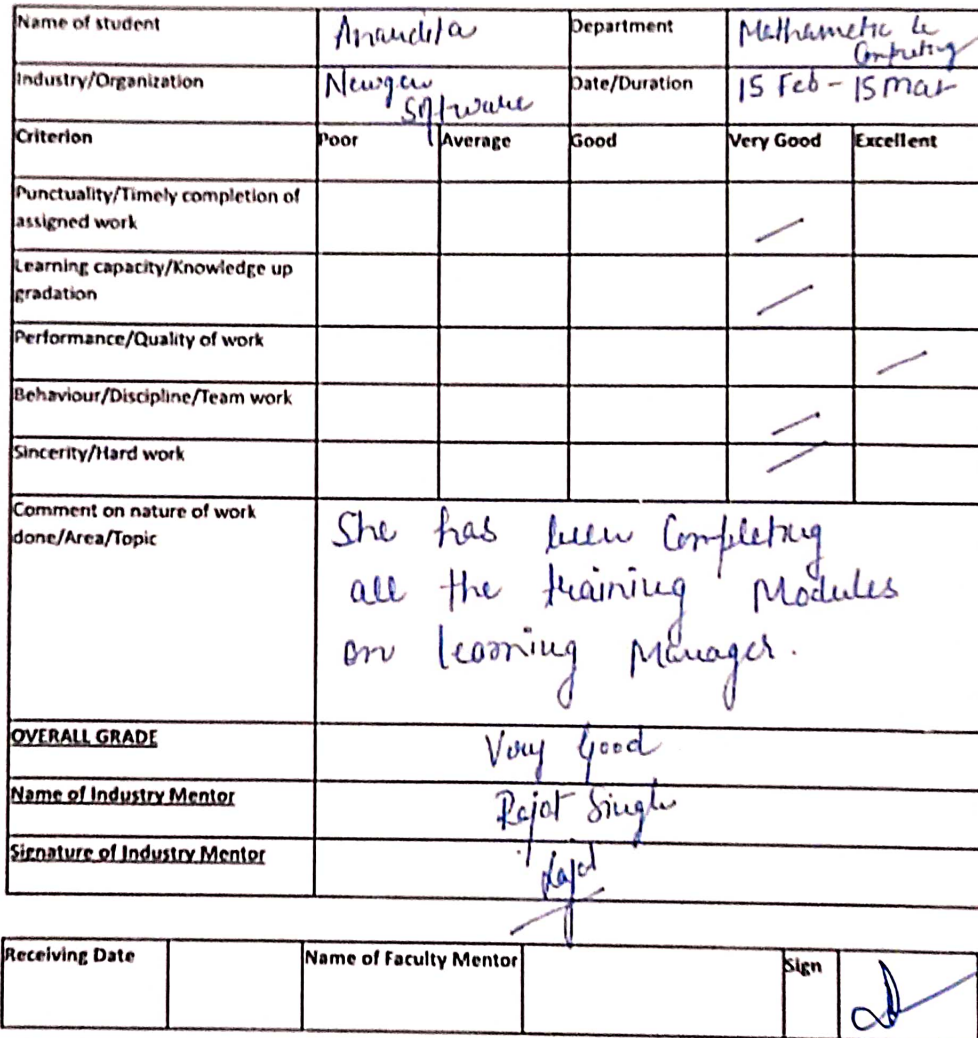 Name of student Anandita Department Mathametic &
Computing
Industry/Organization Newgen Date/Duration 15 Feb - 15 Mar
Software
Criterion Poor Average Good Very Good Excellent
Punctuality/Timely completion of
assigned work
Learning capacity/Knowledge up
gradation
Performance/Quality of work
Behaviour/Discipline/Team work
Sincerity/Hard work
Comment on nature of work
done/Area/Topic
She has been Completing
all the training Modules
on learning Manager.
OVERALL GRADE Very Good
Name of Industry Mentor Rajat Singh
Signature of Industry Mentor Rajat
Receiving Date Name of Faculty Mentor Sign